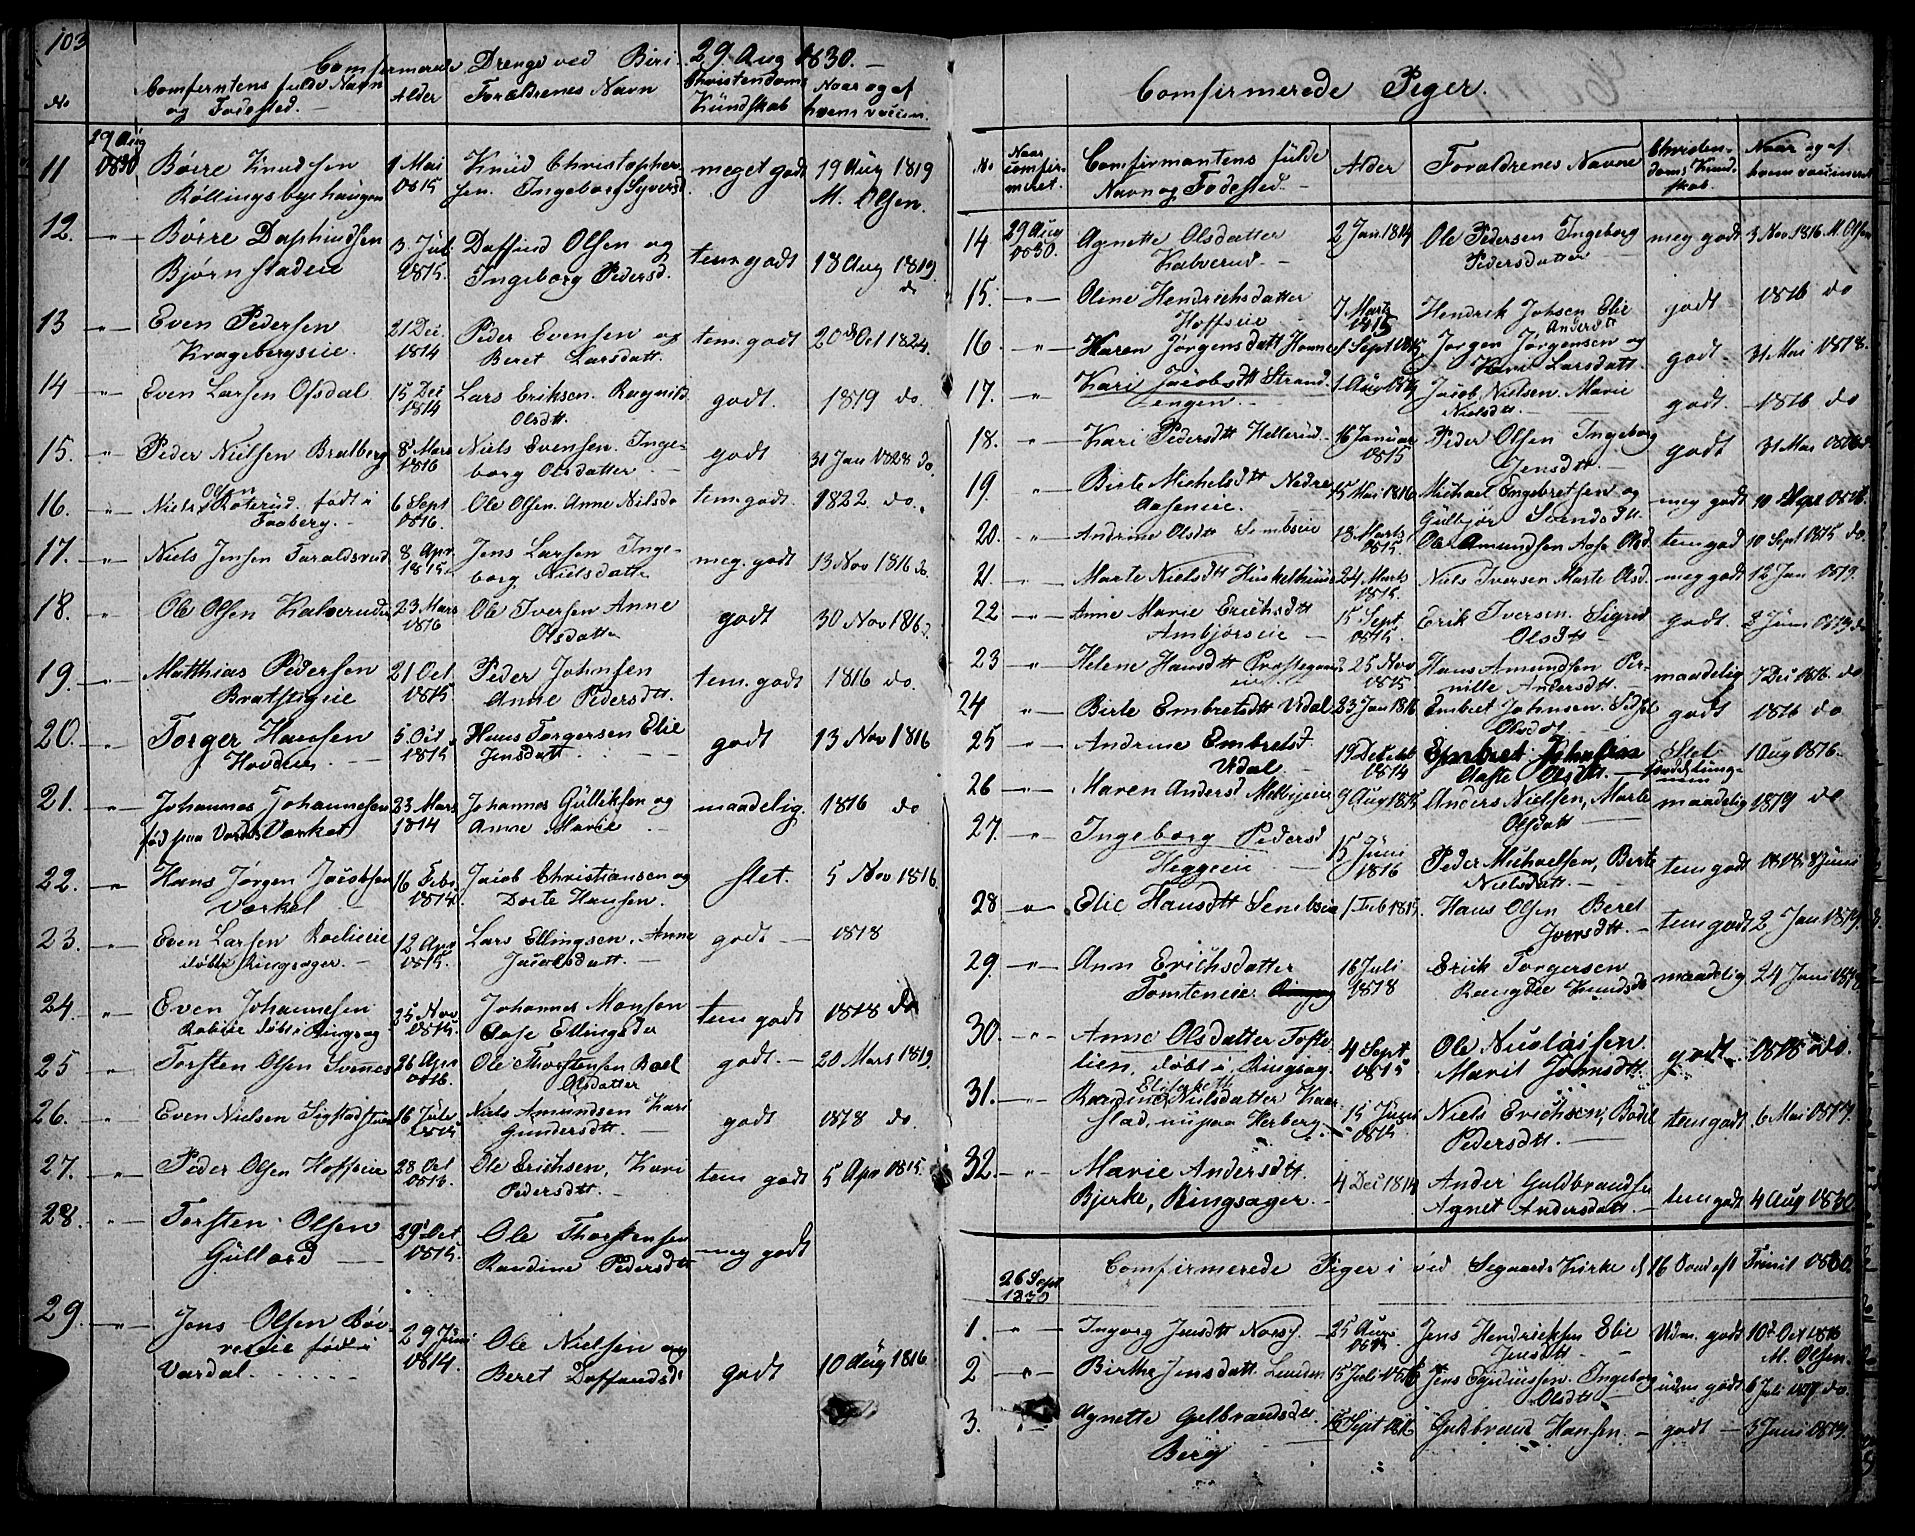 103
Comfirmerede Drenge ved Biri 29 Aug 1830. —
No
Comferntens fulde Navn og Fødested. —
Alder
Forældrenes Navn
Christendoms Kundskab
Naar og af hvem vaccin.
11 29 Aug 1830 Børre Knudsen 1 Mai Knud Christopher- meget godt 19 Aug 1819
Røllingsbyehaugen 1815 sen. Ingeborg Syversd M. Olsen.
12. — Børre Daphindsen 3 Jul. Daffind Olsen og tem godt 18 Aug 1819
Bjørnstadeie 1815 Ingeborg Pedersd. do
13 — Even Pedersen 21 Dec Peder Evensen og tem. godt 20 Oct 1824.
Kragebergseie. 1814 Beret Larsdatt.
14 " Even Larsen Ofsdal 15 Dec Lars Eriksen. Ragnild godt. 1819 do.
1814 Olsdtt.
15. " Peder Nielsen Bratberg 8 Mars Niels Evensen. Inge- godt 31 Jan 1828 do.
1816 borg Olsdatter —
16. " Niels Olsen Roterud. født i 6 Sept Ole Olsen. Anne Nilsdo tem. godt. 1822 do.
Faaberg. — 1816.
17. " Niels Jensen Taraldsrud 8 Apr Jens Larsen Inge- meg. godt 13 Nov 1816 do.
1815. borg Nielsdatte
18. " Ole Olsen Kalverudeie 23 Mars Ole Iversen Anne godt 30 Nov 1816 d.
1816 Olsdatte
19. " Matthias Pedersen 21 Oct Peder Johnsen tem. godt 1816 do.
Bratstigeie 1815 Anne Pedersdtt.
20. " Torger Hansen 5 Oct Hans Torgersen Elie godt 13 Nov 1816
Hovdeie 1815 Jensdatt.
21. " Johannes Johannesen 23 Mars Johannes Gulliksen og maadelig. 1816 do
fød paa Værket 1814 Anne Marie
22. " Hans Jørgen Jacobsen 16 Febr. Jacob Christiansen og slet. 5 Nov 1816.
Værket — 1814. Dorte Hansen.
23. " Even Larsen Roelieie 12 Apr Lars Ellingsen. Anne godt — 1818
døbt i Ringsager. — 1815. Jacobsdatt. —
24. " Even Johannesen 25 Nov Johannes Monsen tem godt 1818 do
døbt i Ringsag 1815. Aase Ellingsdtr
25 " Torsten Olsen Svenes 26 Apr Ole Thorstensen Roel godt. — 20 Mars 1819.
1816. Olsdatter
26. " Even Nielsen Sigstadstuen 16 Julii Niels Amundsen Kari godt 1818 do.
1815 Gundersdtt. —
27. " Peder Olsen Hoffseie 28 Oct Ole Erichsen, Kari tem godt 5 Apr 1815.
1813. Pedersdtt. —
28. " Torsten Olsen 29 Oct Ole Thorstensen meg godt
Gullord 1815. Randine Pedersdtt
29. " Jens Olsen Bør- 29 Juni Ole Nielsen og godt 10 Aug 1816.
reseie født i 1814. Beret Daffindsd.
Vardal . . . . . .
Comfirmerede Piger.
No
Naar comfir- meret.
Comfirmantens fulde Navn og Fødested. —
Alder
Forældrenes Navne
Christen- doms Kund- skab.
Naar og af hvem vaccineret
14 29 Aug 1830. Agnette Olsdatter 2 Jan 1814 Ole Pedersen Ingeborg meg godt 3 Nov 1816. M. Olsen
Kalverud — Pedersdatter
15. " Oline Hendrichsdatter 7 Marts Hendrik Johsen Elie godt 1816 do
Hoffseie 1815 Andersdt
16. " Karen Jørgensdatt Hovne 1 Sept 1815 Jørgen Jørgensen og godt. 31 Mai 1818.
Kari Larsdatt.
17. " Kari Jacobsdtt Strand- 1 Aug 1814 Jacob Nielsen. Marie godt. 1816 do
engen. — Nielsdtt.
18. " Kari Pedersdtt Hellerud. 16 Januar Peder Olsen Ingeborg godt 31 Mai 1818 do.
1815 Jensdtt. —
19 " Birte Michelsdtt Nedre 15 Mai 1816 Michael Engebretsen og meg godt 10 1816
Aaseneie. Gulbjør Svendsdtt.
20. " Andrine Olsdtt Sembseie 18 Marts Ole Amundsen Aase Olsd. tem god 10 Sept 1815 do.
1815.
21. " Marte Nielsdtt Huskelhuus 24 Marts Niels Iversen Marte Olsd. meg godt 12 Jan 1819.
1815.
22 " Anne Marie Erichsdtt 15 Sept Erik Iversen. Sigrid godt. 8 Juni 1819 do
Ambjørseie — 1815. Olsdtt
23 " Helene Hansdtt Præstegaard 25 Nov Hans Amundsen Per- maadelig 7 Dec 1816. do
eie 1815 nille Andersdtt. —
24 " Birte Embretsdtt Udal 23 Jan 1816 Embret Johnsen. godt 1816 do
Olsdtt
25 " Andrine Embretsd. 19 Dec Embret Johnsen Slet 1 Aug 1816.
Udal 1814 Aaste Olsdtt. —
26 " Maren Andersd. Melbyeeie 9 Aug 1815 Anders Nielsen, Marte maadelig 1819 do
Olsdatt
27. " Ingeborg Pedersd 15 Juni Peder Michaelsen, Berte tem godt 1818 8 Juni
Heggeie 1816 Nielsdatt. —
28 " Elie Hansdtt Sembseie 1 Feb 1815. Hans Olsen Beret tem godt 2 Jan 1819. d.
Iversdtt. —
29 " Ann Erichsdatter 16 Juli Erick Torgersen maadelig. 24 Juni
Tomteneie. 1818 Knudsd.
30. " Anne Olsdatter Tofte 4 Sept Ole Nicolaisen godt. 1818 do.
lien, døbt i Ringsag. 1815 Marit Joensdtt.
31. " Randine Elisabeth Nielsdatter Kaar- 15 Juni Niels Erichsen, Bodil tem godt 6 Mai 1819.
stad, nu paa Herberg. 1815. Pedersdtt. —
32 " Marie Andersdtt. 4 Dec 1814 Ander Guldbrandsen tem godt 4 Aug 1830.
Bjerke, Ringsager. — Agnet Andersdatt. —
26 Sept 1830 Comfirmerede Piger i ved Segaards Kirke d 16 Trinit 1830.
1. " Ingborg Jensdtt 25 Aug Jens Hendriksen Elie Udm. godt 10 Oct 1816
1815. Jensdtt — M. Olsen.
2 " Birthe Jensdatt. 15 Juli 1816 Jens Egidiussen. Ingeborg udm godt 6 Juli do.
Olsdtt. —
3. " Agnette Gulbrandsdtr Sept 1816 Guldbrand Hansen. — godt — 3 Juni 1819.
Berg